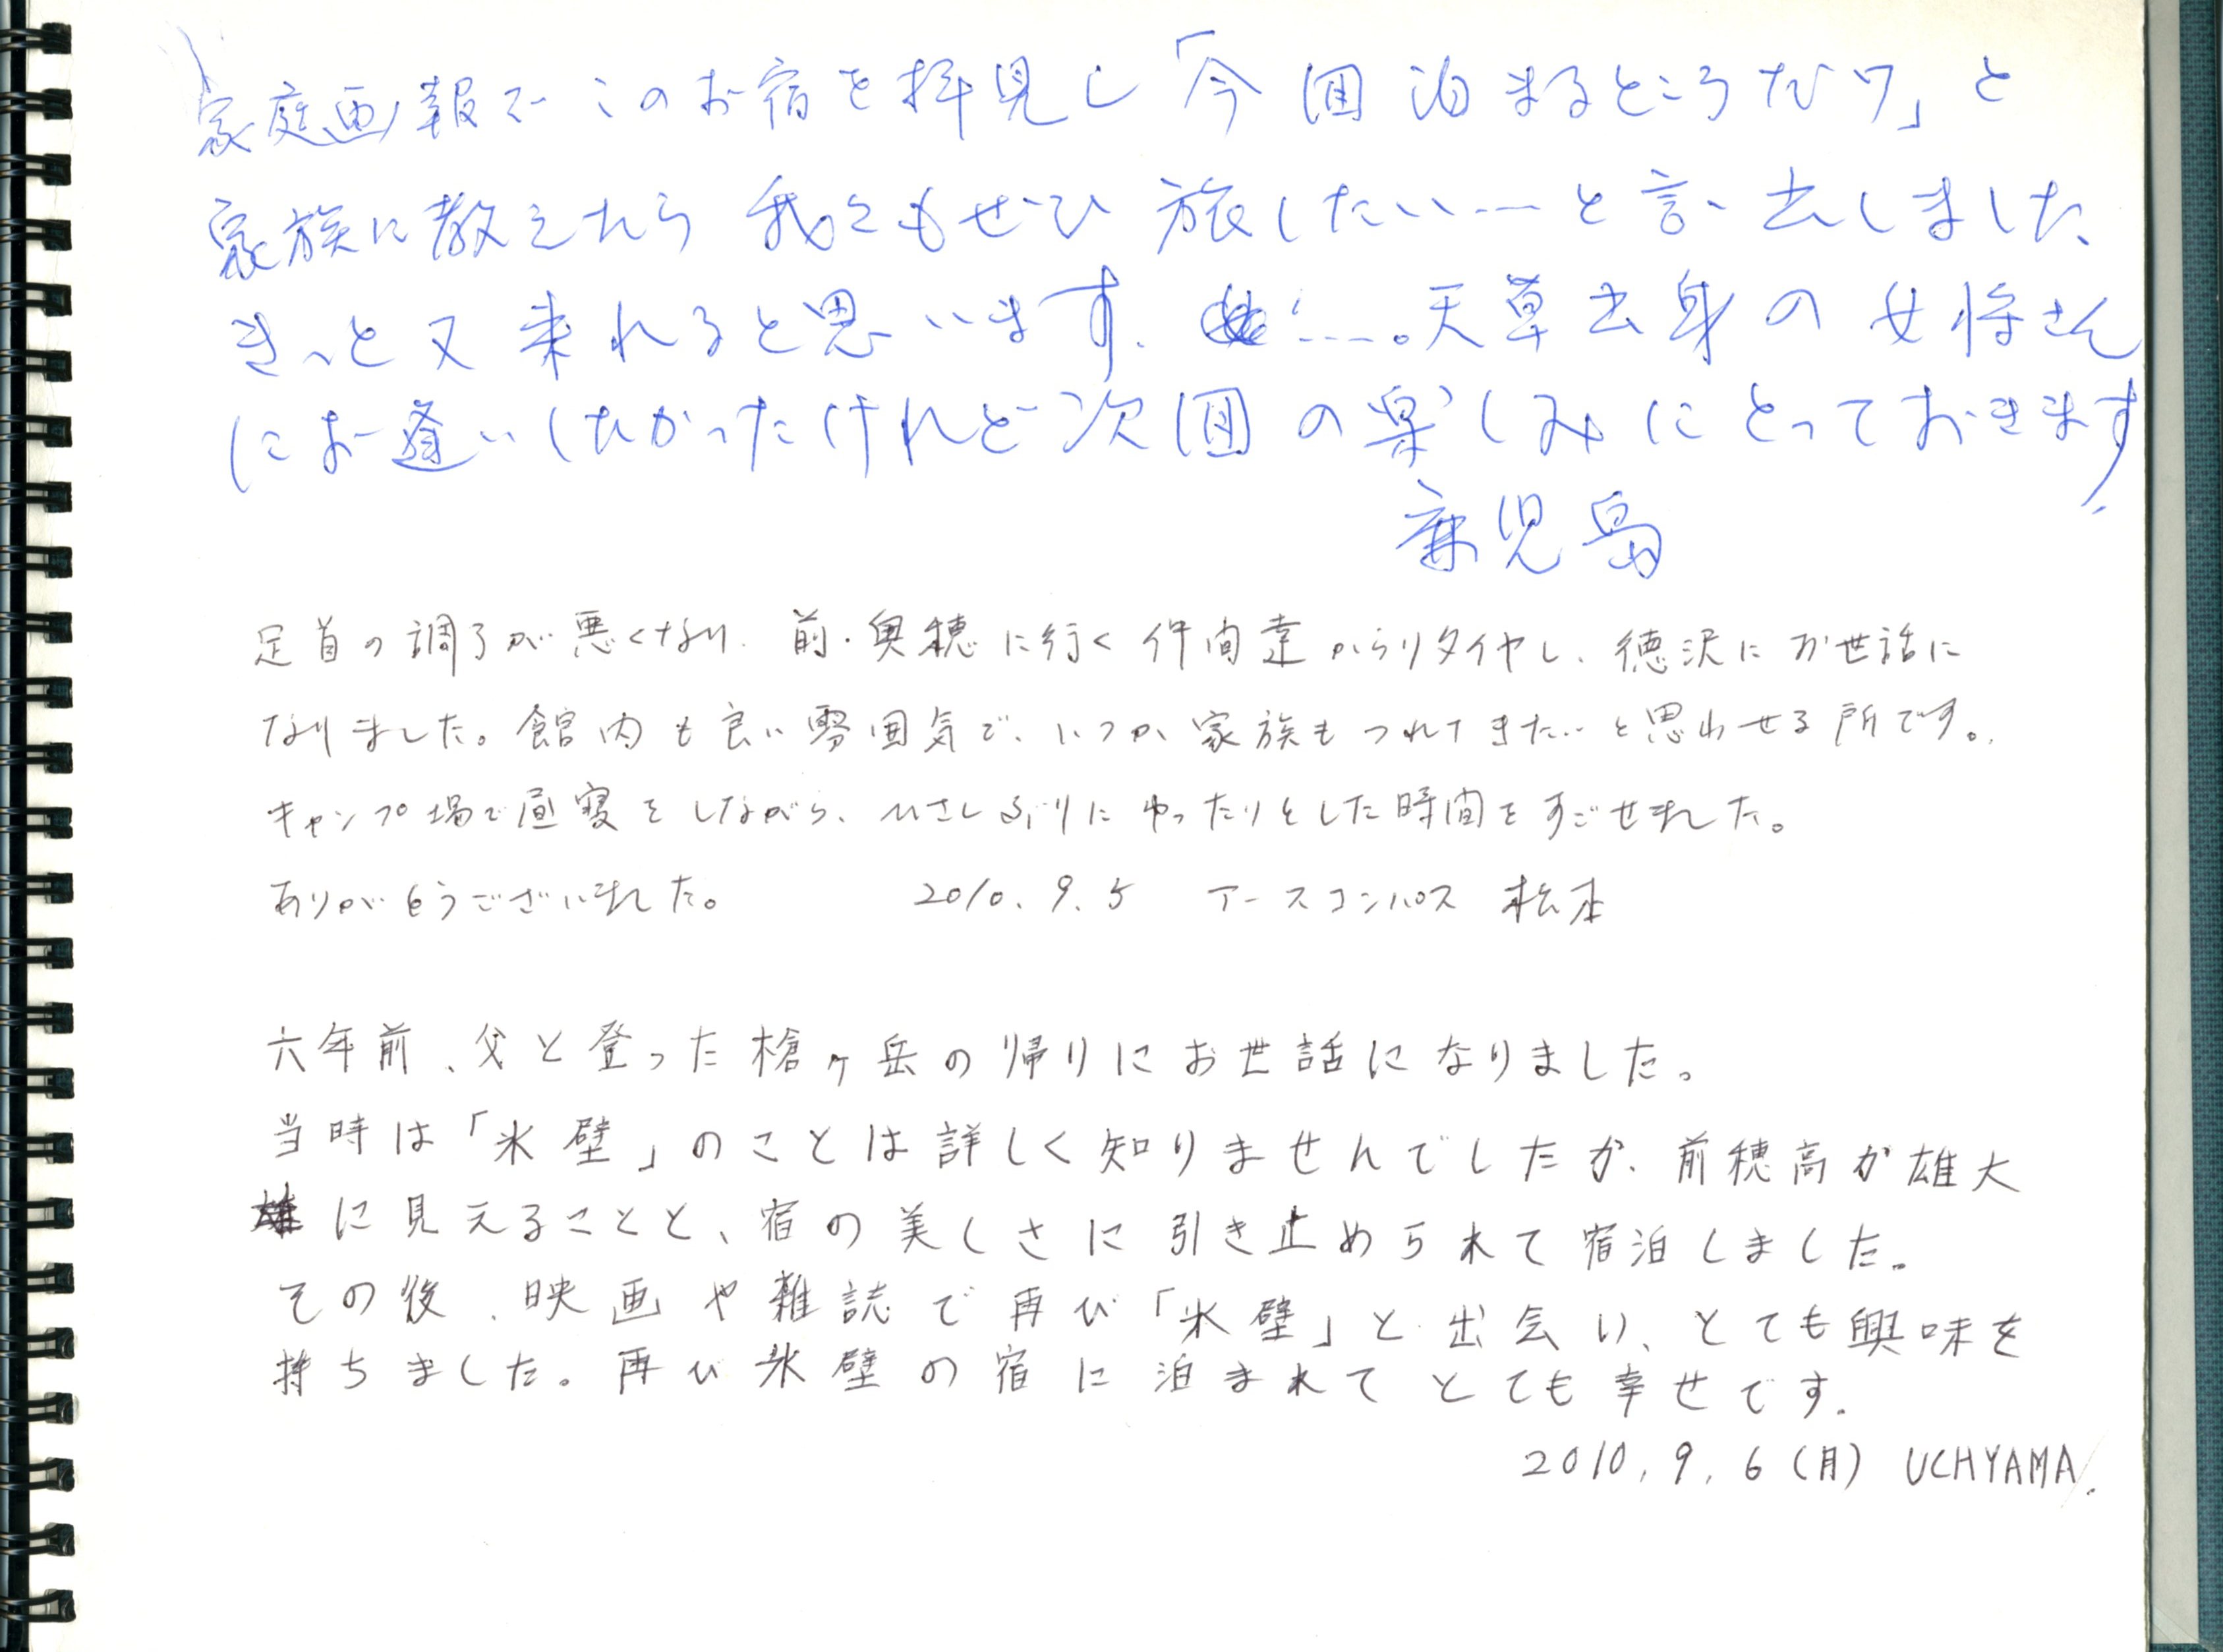 家庭画報でこのお宿を拝見し「今回泊まるところだワ」と
家族に教えたら我々もぜひ旅したい…と言い出しました、
きっと又来れると思います。……。天草出身の女将さん
にお逢いしたかったけれど次回の楽しみにとっておきます
鹿児島
足首の調子が悪くなり、前・奥穂に行く仲間達からリタイヤし、徳沢にお世話に
なりました。館内も良い雰囲気で、いつか家族もつれてきたいと思わせる所です。
キャンプ場で昼寝をしながら、ひさしぶりにゆったりとした時間をすごせました。
ありがとうございました。 2010.9.5 アースコンパス 松本
六年前、父と登った槍ヶ岳の帰りにお世話になりました。
当時は「氷壁」のことは詳しく知りませんでしたが、前穂高が雄大
に見えることと、宿の美しさに引き止められて宿泊しました。
その後、映画や雑誌で再び「氷壁」と出会い、とても興味を
持ちました。再び氷壁の宿に泊まれてとても幸せです。
2010.9.6(月) UCHYAMA.